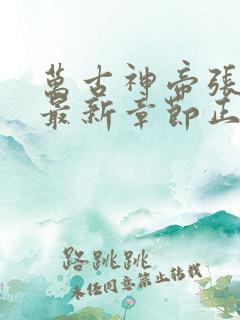 萬古神帝張
最新章節正
路跳跳
未任同意禁止转载